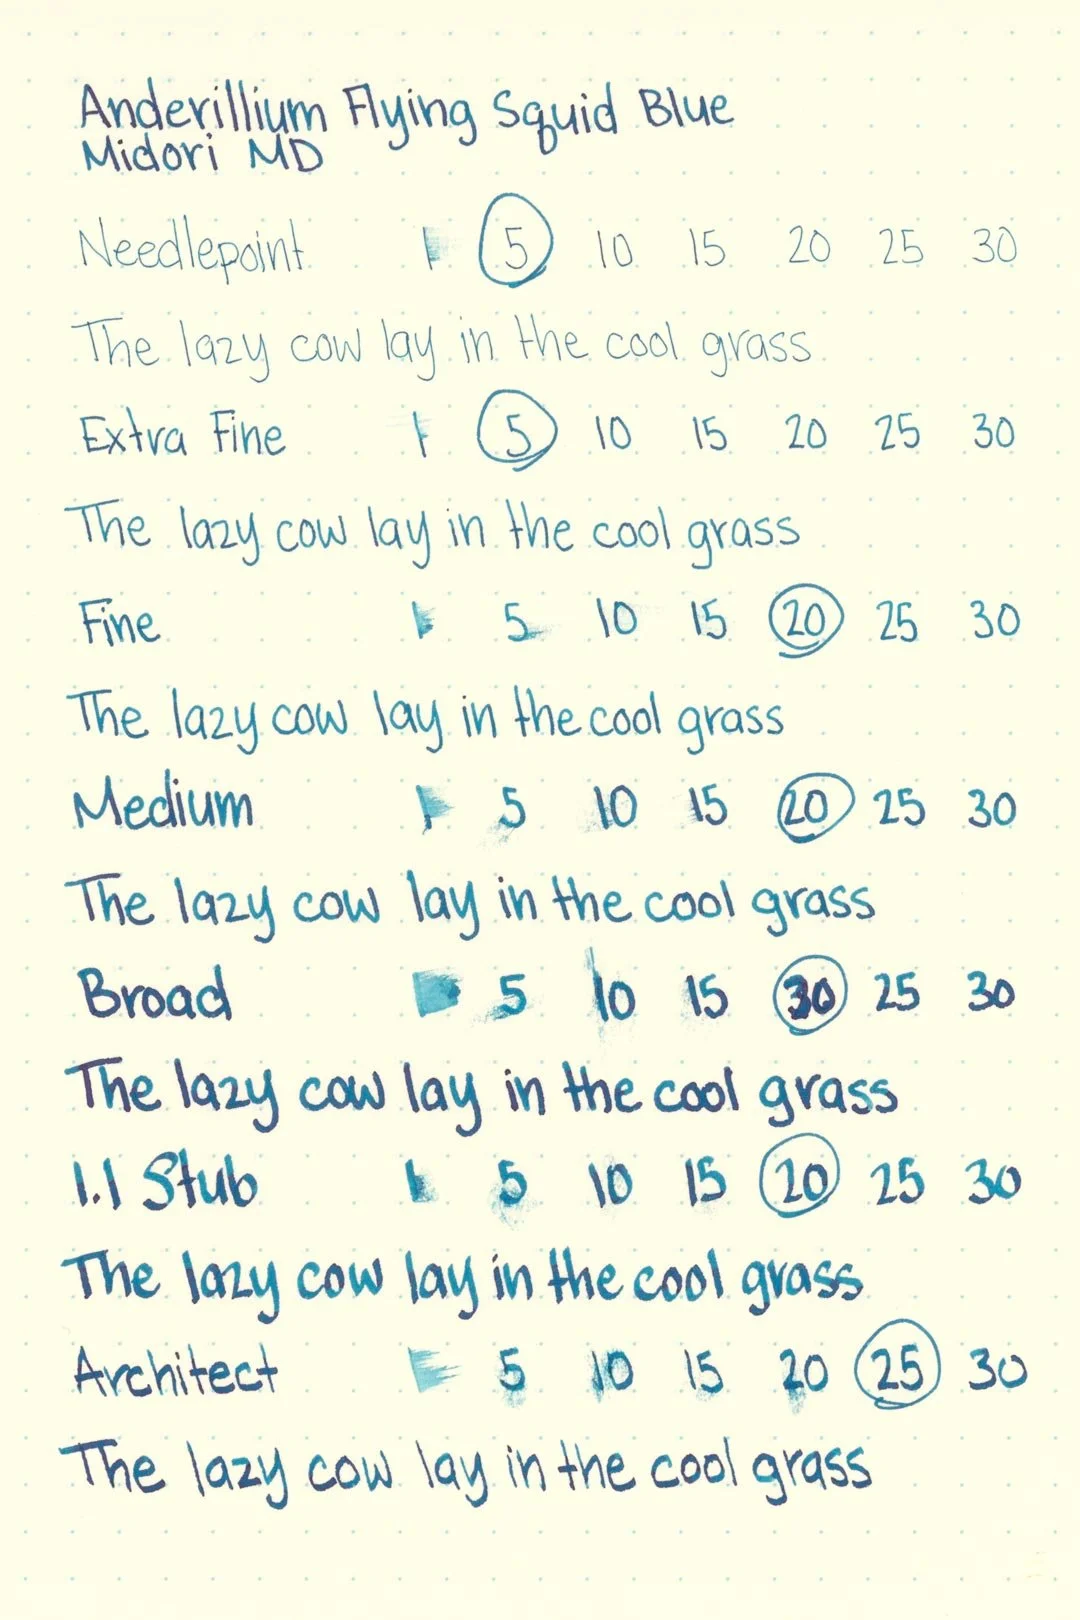 Anderillium Flying Squid Blue
Midori MD
Needlepoint 1 5 10 15 20 25 30
The lazy cow lay in the cool grass
Extra Fine 1 5 10 15 20 25 30
The lazy cow lay in the cool grass
Fine 1 5 10 15 20 25 30
The lazy cow lay in the cool grass
Medium 1 5 10 15 20 25 30
The lazy cow lay in the cool grass
Broad 1 5 10 15 30 25 30
The lazy cow lay in the cool grass
1.1 Stub 1 5 10 15 20 25 30
The lazy cow lay in the cool grass
Architect 1 5 10 15 20 25 30
The lazy cow lay in the cool grass